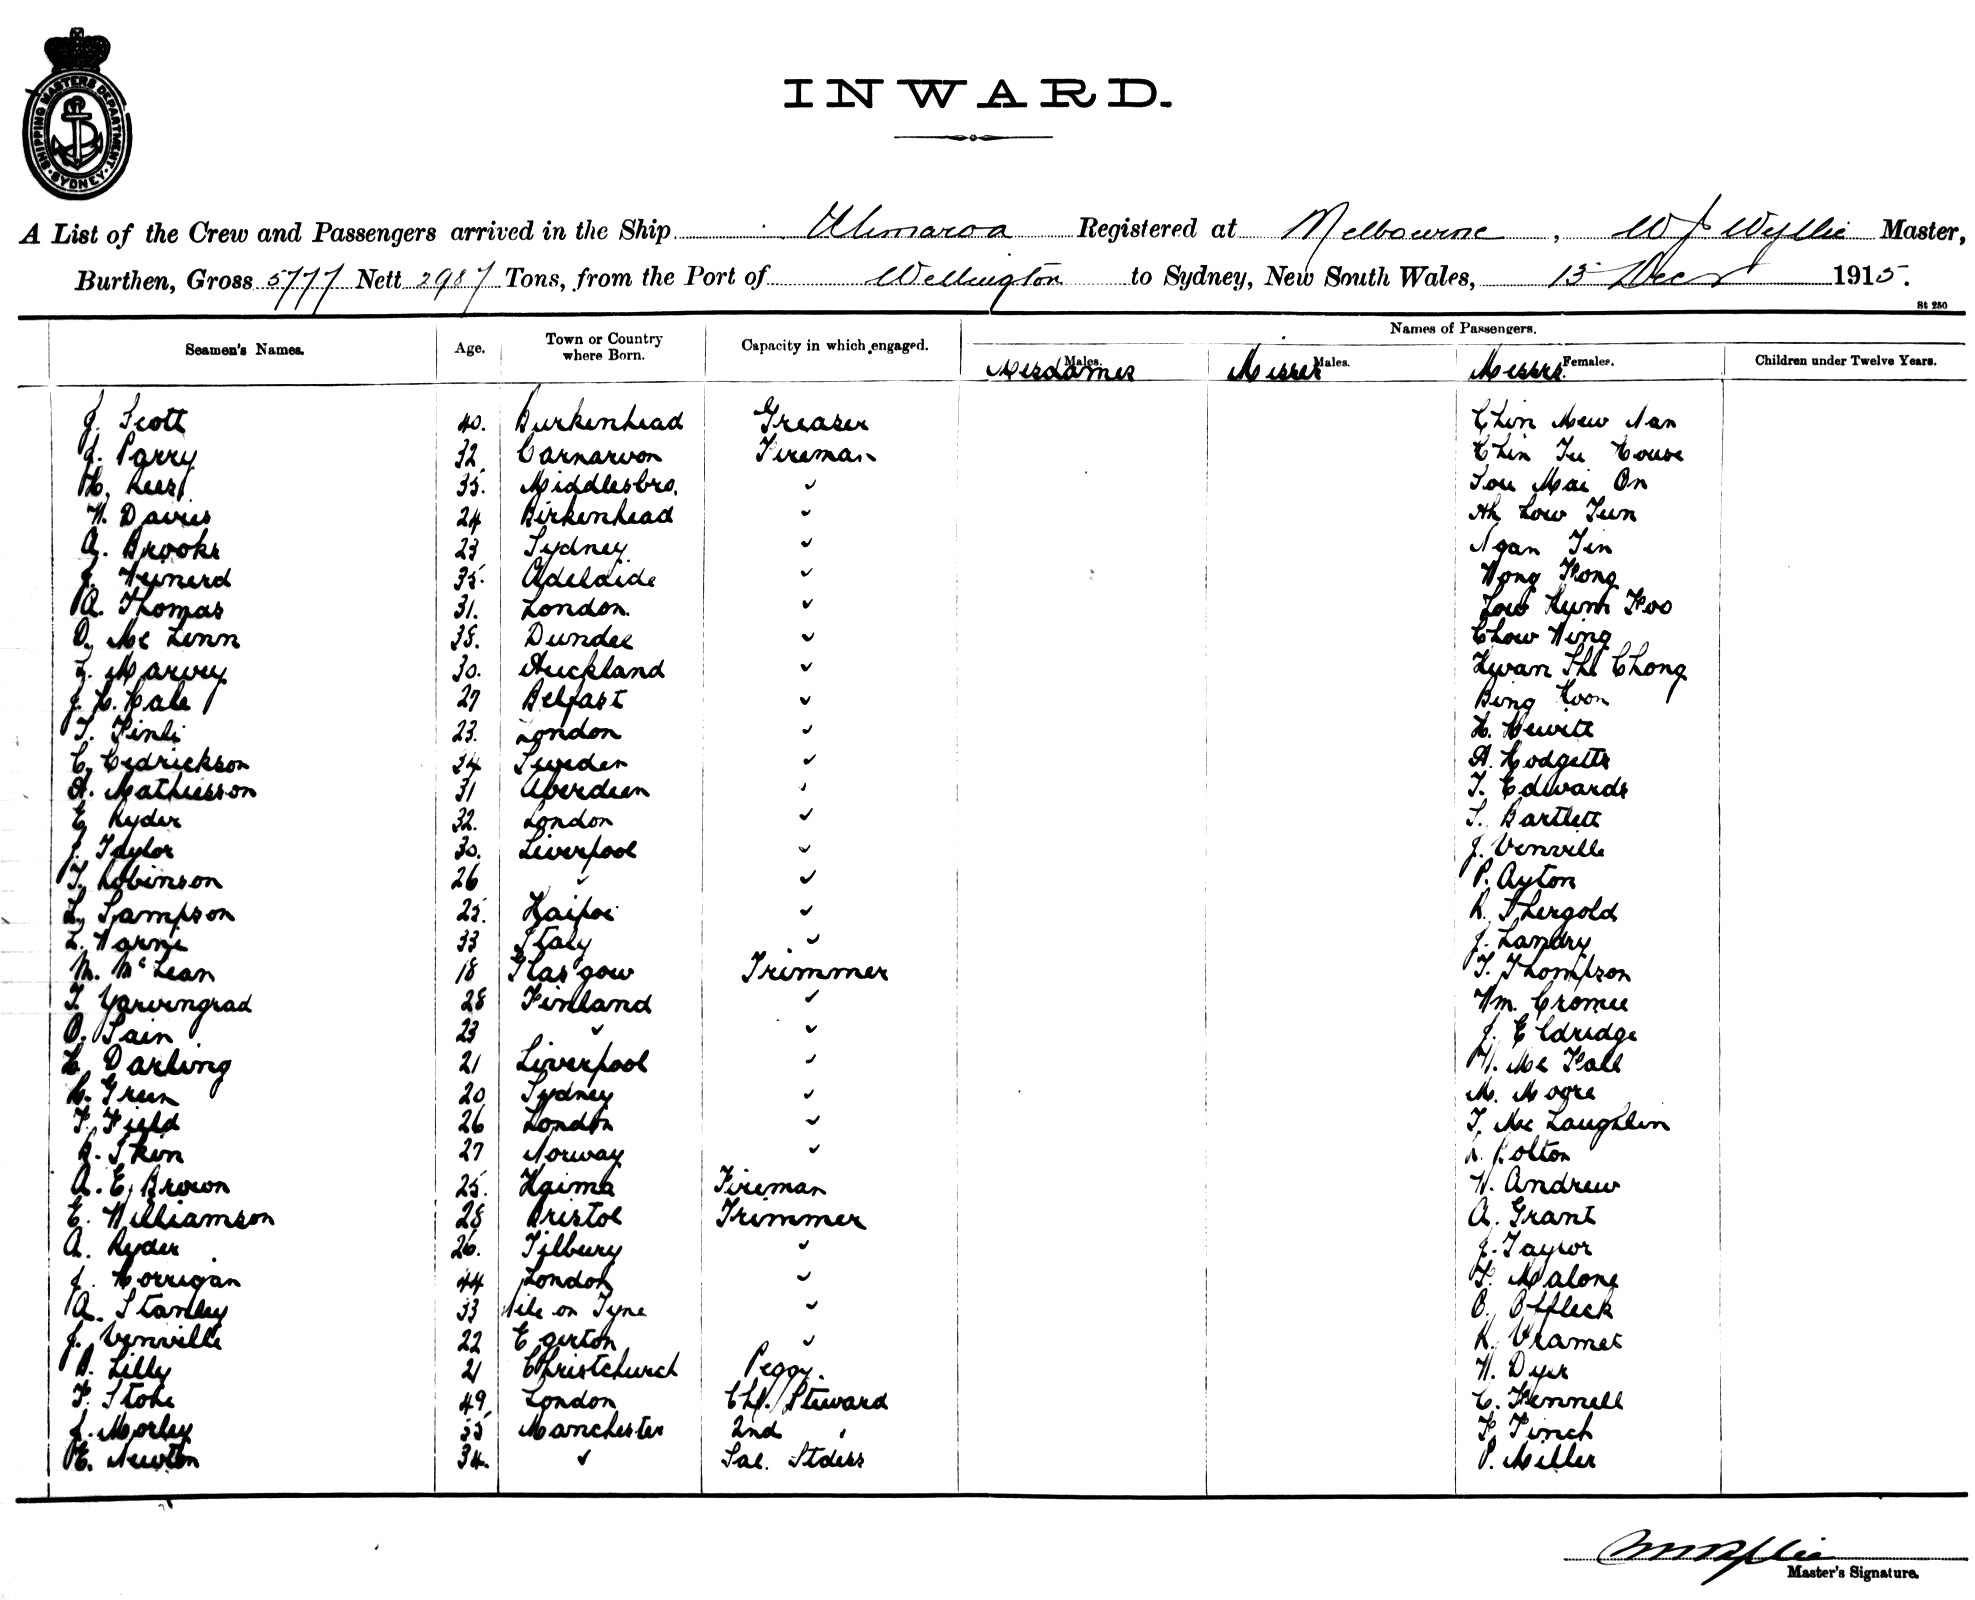 SHIPPING MASTERS DEPARTMENT
SYDNEY
INWARD.
A List of the Crew and Passengers arrived in the Ship Ulimaroa Registered at Melbourne, W J Wyllie Master,
Burthen, Gross 5777 Nett 2987 Tons, from the Port of Wellington to Sydney, New South Wales, 13 Decr 1915.
St 250
Names of Passengers.
Seamen's Names. Age. Town or Country where Born. Capacity in which engaged. Males. Males. Females. Children under Twelve Years.
Mesdames Misses Messrs.
J. Scott 40. Burkenhead Greaser Chin Mew Nan
J. Parry 32 Carnarvon Fireman Chin Tu House
H. Rees 35. Middlesbro. " Sou Mai On
W. Davies 24 Birkenhead " Ah Low Jun
A. Brooks 23 Sydney " Ngan Tin
J. Weinerd 35. Adelaide " Wong Kong
A. Thomas 31. London. " Low Kum Foo
O. Mc Linn 38. Dundee " Chow Wing
L. Marvey 30. Auckland " Kwan Shi Chong
J. H. Hale 27 Belfast " Bing Koon
T. Finli 23. London " H. Hewitt
C. Cedrickson 34 Sweden " A. Hodgetts
A. Mathiesson 31 Aberdeen " T. Edwards
E. Ryder 32. London " S. Bartlett
J. Taylor 30. Liverpool " J. Venville
T. Robinson 26 " " P. Ayton
L. Sampson 25. Kaipoi " R. Shergold
L. Warne 33 Italy " J. Landry
M. McLean 18 Glasgow Trimmer T. Thompson
T. Yarvingrad 28 Finland " Wm. Cromie
O. Sain 23 " " J. Eldridge
H. Darling 21 Liverpool " W. Mc Fall
H. Green 20 Sydney " M. Moore
F. Field 26 London " T. Mc Laughlin
R. Skin 27 Norway " R. Bolton
A. E. Brown 25. Kaima Fireman W. Andrew
E. Williamson 28 Bristol Trimmer A. Grant
A. Ryder 26. Tilbury " J. Taylor
J. Horrigan 44 London " F. Malone
A. Stanley 33 on Tyne " B. Affleck
J. Venville 22 Egerton " R. Vramet
B. Lilly 21 Christchurch Peggy. W. Dyer
F. Stone 49 London Chf. Steward C. Fennell
J. Morley 35 Manchester 2nd " F. Finch
E. Newton 34. " Sal. Stdess P. Miller
W J Wyllie
Master's Signature.